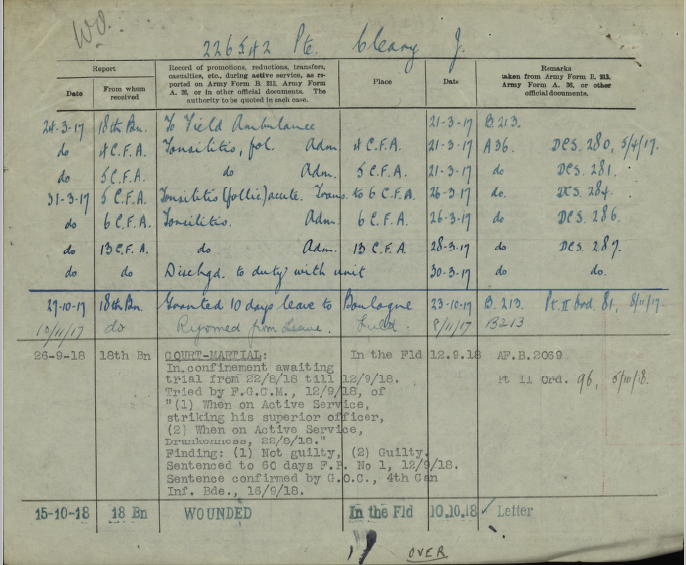 W.O.
226542 Pte. Cleary J.
Report
Record of promotions, reductions, transfers, casualties, etc., during active service, as reported on Army Form B. 213, Army Form A. 36, or in other official documents. The authority to be quoted in each case.
Place
Date
Remarks taken from Army Form B. 213, Army Form A. 36, or other official documents.
Date
From whom received
24-3-17 18th Bn. To Field Ambulance 21-3-17 B.213.
do 4 C.F.A. Tonsilitis, fol. Adm. 4 C.F.A. 21-3-17 A36. DCS. 280, 5/4/17.
do 5 C.F.A. do Adm. 5 C.F.A. 21-3-17 do DCS. 281.
31-3-17 5 C.F.A. Tonsilitis (follic) acute. Trans. to 6 C.F.A. 26-3-17 do. DCS. 284.
do 6 C.F.A. Tonsilitis. Adm. 6 C.F.A. 26-3-17 do DCS. 286.
do 13 C.F.A. do Adm. 13 C.F.A. 28-3-17 do DCS. 287.
do do Dischgd. to duty with unit 30-3-17 do do.
27-10-17 18th Bn. Granted 10 days leave to Boulogne 23-10-17 B.213. Pt. II Ord. 81, 8/11/17.
10/11/17 do Rejoined from Leave. Field. 9/11/17 B213
26-9-18 18th Bn COURT-MARTIAL: In the Fld 12.9.18 AF.B.2069
In confinement awaiting
trial from 22/8/18 till 12/9/18.
Tried by F.G.C.M., 12/9/18, of Pt 11 Ord. 96, 5/10/18.
"(1) When on Active Service,
striking his superior officer,
(2) When on Active Service,
Drunkenness, 22/8/18."
Finding: (1) Not guilty, (2) Guilty.
Sentenced to 60 days F.P. No 1, 12/9/18.
Sentence confirmed by G.O.C., 4th Can
Inf. Bde., 16/9/18.
15-10-18 18 Bn WOUNDED In the Fld 10.10.18 Letter
OVER